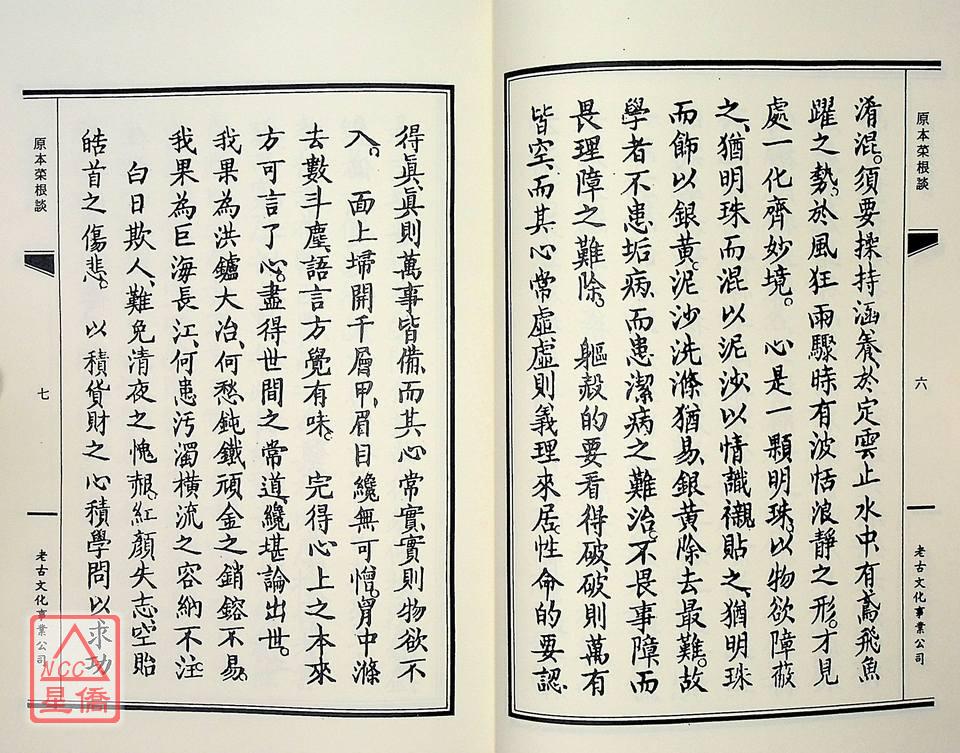 原本菜根談
六
老古文化事業公司
淆混。須要操持涵養、於定雲止水中、有鳶飛魚
躍之勢、於風狂雨驟時有波恬浪靜之形。才見
處一化齊妙境。 心是一顆明珠、以物欲障蔽
之、猶明珠而混以泥沙、以情識襯貼之、猶明珠
而飾以銀黃。泥沙洗滌猶易、銀黃除去最難。故
學者不患垢病、而患潔病之難治。不畏事障、而
畏理障之難除。 軀殼的要看得破、破則萬有
皆空、而其心常虛、虛則義理來居、性命的要認
得眞、眞則萬事皆備、而其心常實、實則物欲不
入。 面上埽開千層甲、眉目纔無可憎。胷中滌
去數斗塵、語言方覺有味。 完得心上之本來
方可言了心。盡得世間之常道、纔堪論出世。
我果為洪鑪大冶、何愁鈍鐵頑金之銷鎔不易。
我果為巨海長江、何患污濁橫流之容納不注
 白日欺人、難免清夜之愧赧。紅顏失志、空貽
皓首之傷悲。 以積貨財之心積學問、以求功
原本菜根談
七
老古文化事業公司
NCC
星僑